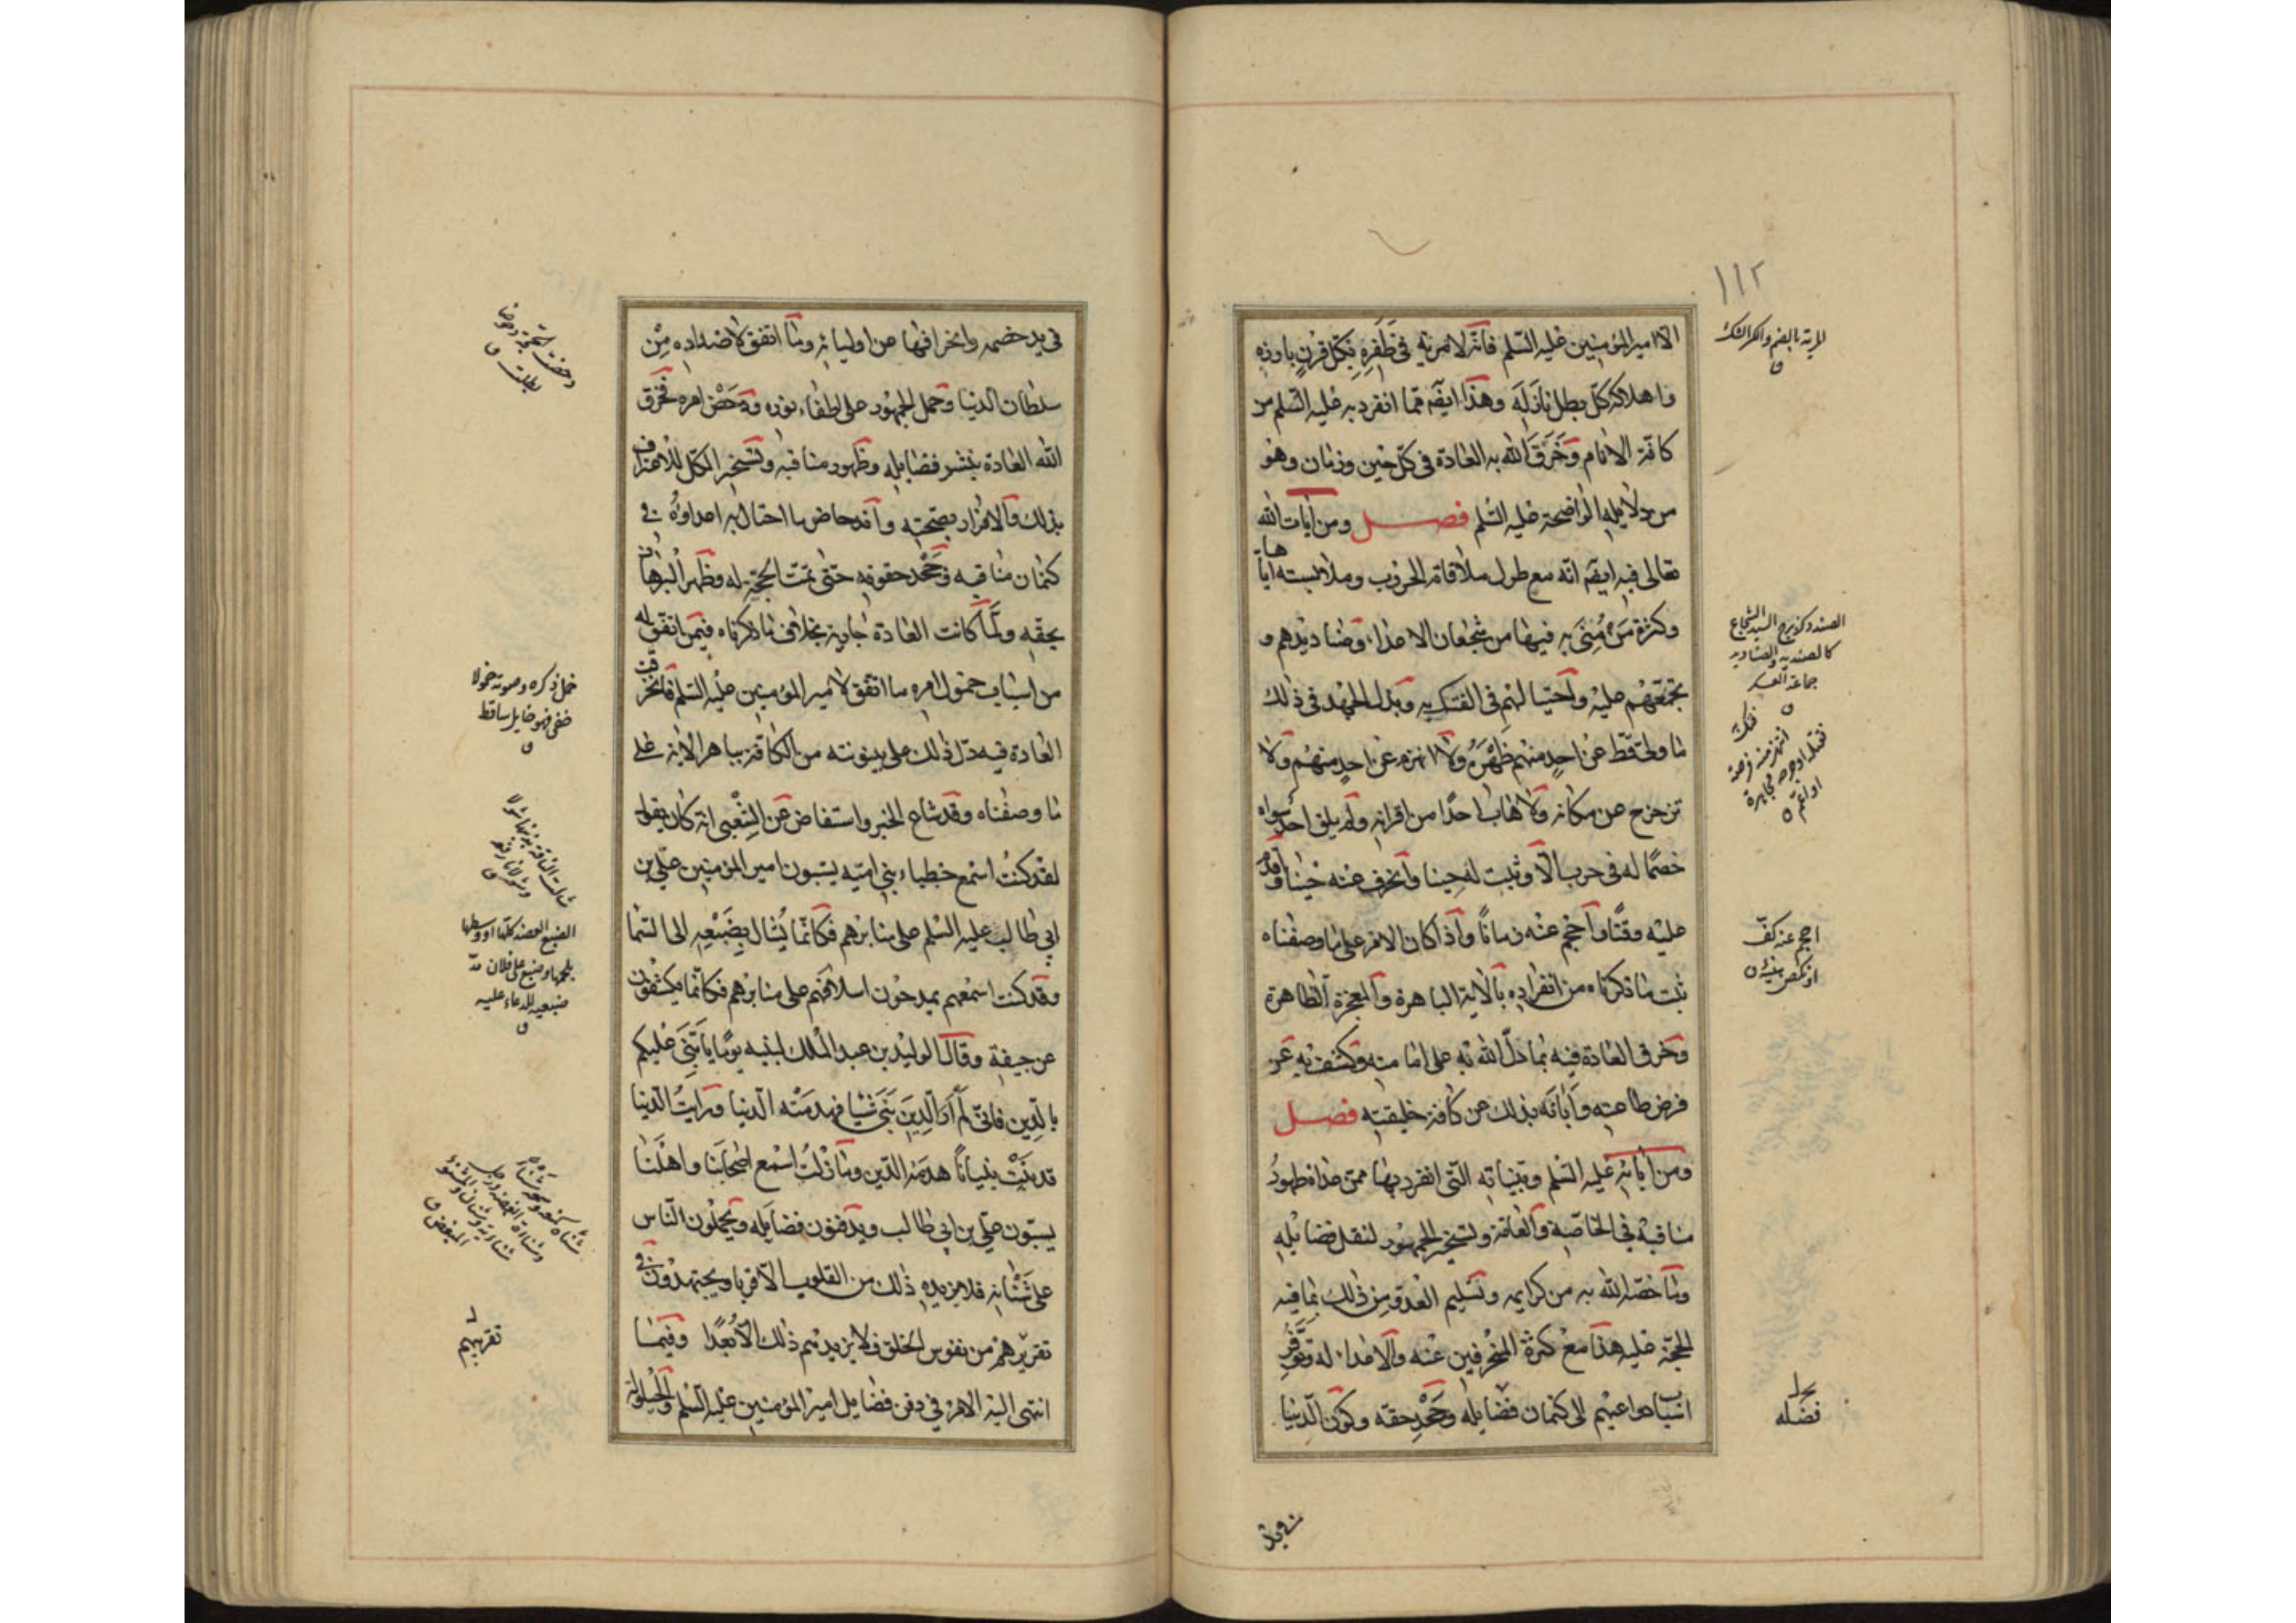 ١١٢
الا امير المؤمنين عليه السلم فانه لا مرية في ظفره بكل قرن بارزه
واهلاكه كل بطل نازله وهذا ايضه مما انفرد به عليه السلم من
كافة الانام وخرق الله به العادة في كل حين وزمان وهو
من دلايله الواضحة عليه السلم فصل ومن آيات الله
تعالى فيه ايضه انه مع طول ملاقاته الحروب وملابسته اياها
وكثرة من مني به فيها من شجعان الاعداء وصناديدهم و
تجمعهم عليه واحتيالهم في الفتك به وبذل الجهد في ذلك
ما ولى قط عن احد منهم ظهره ولا انهزم عن احد منهم ولا
تزحزح عن مكانه ولا هاب احدا من اقرانه ولم يلق احد سواه
خصما له في حرب الا وثبت له حينا وانحرف عنه حينا واقدم
عليه وقتا واحجم عنه زمانا واذا كان الامر على ما وصفناه
ثبت ما ذكرناه من انفراده بالآية الباهرة والمعجزة الظاهرة
وخرق العادة فيه بما دل الله به على امامته وكشف به عن
فرض طاعته وابانه بذلك عن كافة خليقته فصل
ومن آياته عليه السلم وبيناته التي انفرد بها ممن عداه ظهور
مناقبه في الخاصة والعامة وتسخير الجمهور لنقل فضايله
وما خصه الله به من كرايمه وتسليم العدو من ذلك بما فيه
الحجة عليه هذا مع كثرة المنحرفين عنه والاعداء له وتوفر
اسباب دواعيهم الى كتمان فضايله وجحد حقه وكون الدنيا
المرية بالضم والكسر الشك
ق
الصندد كزبرج السيد الشجاع
كالصنديد والصناديد
جماعة العسكر
ق
فتك
انتهز منه فرصة
فقتله او جرحه مجاهرة
او اعم
ق
احجم عنه كف
او نكص هيبة ق
فضله
في يد
في يد خصمه وانحرافها عن اوليائه وما اتفق لاضداده من
سلطان الدنيا وحمل الجمهور على اطفاء نوره ودحض امره فخرق
الله العادة بنشر فضايله وظهور مناقبه وتسخير الكل للاعتراف
بذلك والاقرار بصحته واندحاض ما احتال به اعداؤه في
كتمان مناقبه وجحد حقوقه حتى تمت الحجة له وظهر البرهان
بحقه ولما كانت العادة جارية بخلاف ما ذكرناه فيمن اتفق له
من اسباب خمول امره ما اتفق لامير المؤمنين عليه السلم فانخرقت
العادة فيه دل ذلك على بينونته من الكافة بباهر الآية على
ما وصفناه وقد شاع الخبر واستفاض عن الشعبي انه كان يقول
لقد كنت اسمع خطباء بني امية يسبون امير المؤمنين علي بن
ابي طالب عليه السلم على منابرهم فكانما يشال بضبعيه الى السما
وقد كنت اسمعهم يمدحون اسلافهم على منابرهم فكانما يكشفون
عن جيفة وقال الوليد بن عبد الملك لبنيه يوما يا بني عليكم
بالدين فاني لم ار الدين بنى شيا فهدمته الدنيا ورايت الدنيا
قد بنت بنيانا هدمه الدين وما زلت اسمع اصحابنا واهلنا
يسبون علي بن ابي طالب ويدفنون فضايله ويحملون الناس
على شنآنه فلا يزيده ذلك من القلوب الا قربا ويجتهدون في
تقريرهم من نفوس الخلق فلا يزيدهم ذلك الا بعدا وفيما
انتهى اليه الامر في دفن فضايل امير المؤمنين عليه السلم والحيلولة
دحضت الحجة دحوضا
بطلت ق
خمل ذكره وصوته خمولا
خفي فهو خامل ساقط
ق
الضبع العضد كلها او وسطها
بلحمها وضبع على فلان مد
ضبعيه للدعاء عليه
ق
تقريبهم